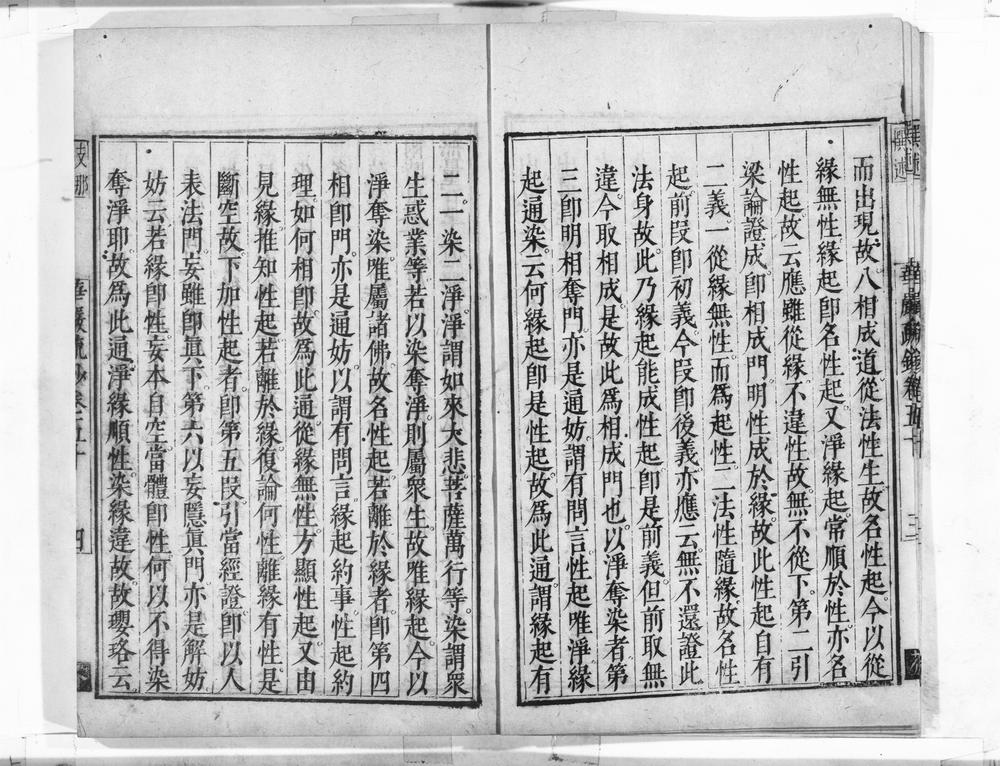 而出現故八相成道從法性生故名性起今以從
緣無性緣起卽名性起又淨緣起常順於性亦名
性起故云應雖從緣不違性故無不從下第二引
梁論證成卽相成門明性成於緣故此性起自有
二義一從緣無性而爲性起二法性隨緣故名性
起前段卽初義今段卽後義亦應云無不還證此
法身故此乃緣起能成性起卽是前義但前取無
違今取相成是故此爲相成門也以淨奪染者第
三卽明相奪門亦是通妨謂有問言性起唯淨緣
起通染云何緣起卽是性起故爲此通謂緣起有
二一染二淨淨謂如來大悲菩薩萬行等染謂衆
生惑業等若以染奪淨則屬衆生故唯緣起今以
淨奪染唯屬諸佛故名性起若離於緣者卽第四
相卽門亦是通妨以謂有問言緣起約事性起約
理如何相卽故爲此通從緣無性方顯性起又由
見緣推知性起若離於緣復論何性離緣有性是
斷空故下加性起者卽第五段引當經證卽以人
表法門妄雖卽眞下第六以妄隱眞門亦是解妨
妨云若緣卽性妄本自空當體卽性何以不得染
奪淨耶故爲此通淨緣順性染緣違故故瓔珞云
華嚴疏鈔卷五十
四
支那
撰述